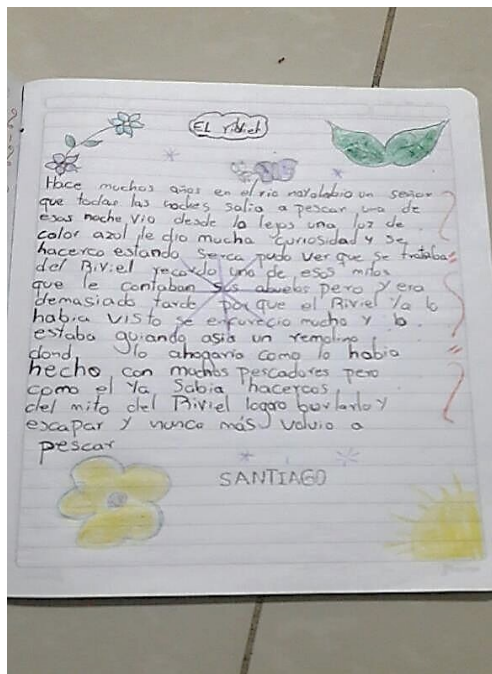 EL riviel
Hace muchos años en el rio habia un señor
que todas las noches salia a pescar una de
esas noche vio desde lo lejos una luz de
color azul le dio mucha curiosidad y se
hacerco estando serca pudo ver que se trataba
del Riviel recordo uno de esos mitos
que le contaban sus abuelos pero Y era
demasiado tarde por que el Riviel Ya lo
habia visto se enfurecio mucho y lo
estaba guiando asia un remolino
dond lo ahogaria como lo habia
hecho con muchos pescadores pero
como el Ya sabia hacercos
del mito del Riviel logro burlarlo y
escapar y nunca más volvio a
pescar
SANTIAGO